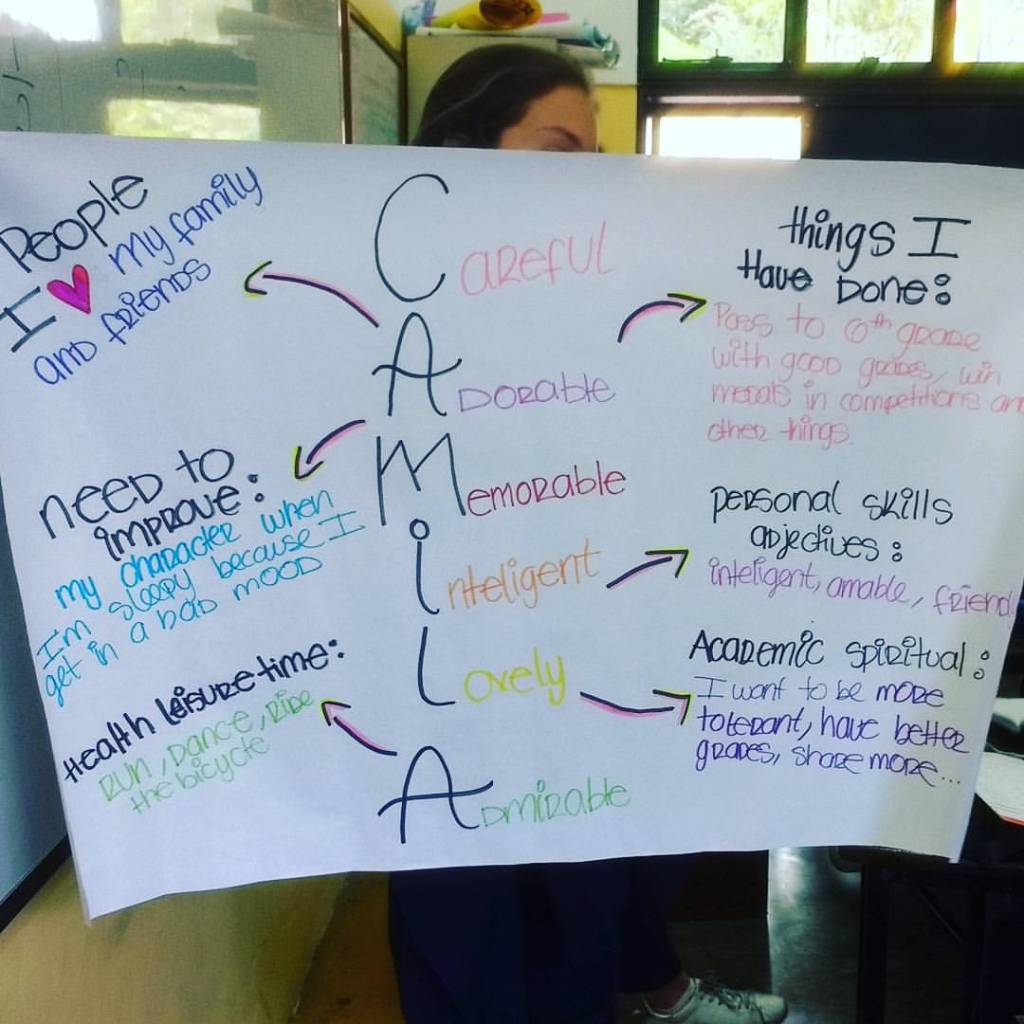 People
I ♥ my family
and friends
Careful
Adorable
Memorable
inteligent
Lovely
Admirable
things I
Have Done:
Pass to 6th grade
with good grades, win
medals in competitions an
other things.
need to
improve:
my character when
I'm sleepy because I
get in a bad mood
personal skills
adjectives:
inteligent, amable, friend
Health leisure time:
Run, Dance, Ride
the bicycle
Academic spiritual:
I want to be more
tolerant, have better
grades, share more...